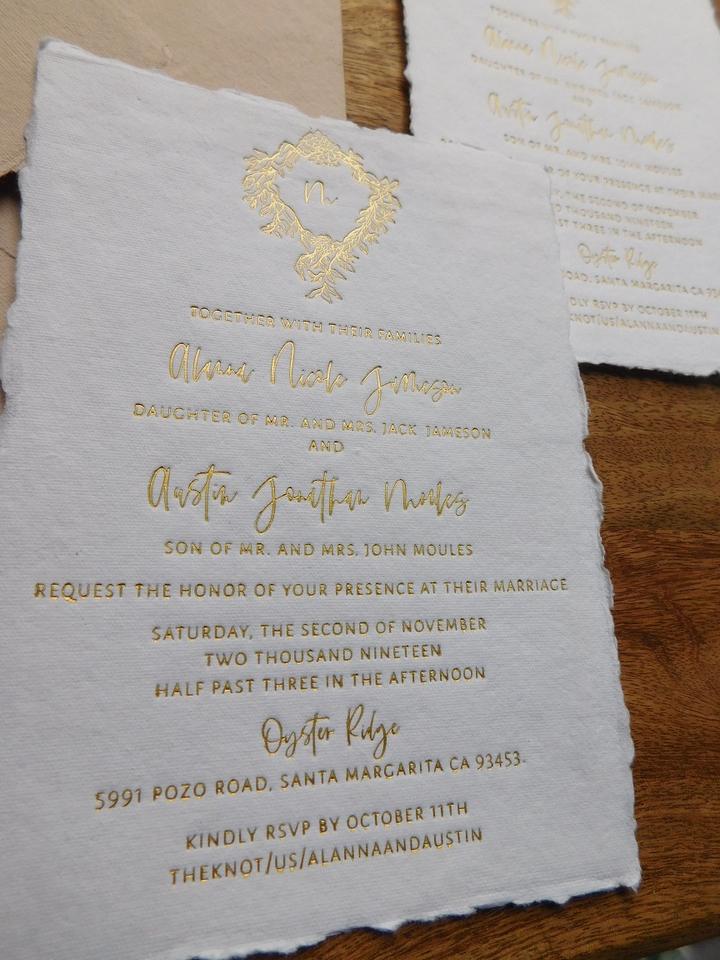 n
TOGETHER WITH THEIR FAMILIES
Alanna Nicole Jameson
DAUGHTER OF MR. AND MRS. JACK JAMESON
AND
Austin Jonathan Moules
SON OF MR. AND MRS. JOHN MOULES
REQUEST THE HONOR OF YOUR PRESENCE AT THEIR MARRIAGE
SATURDAY, THE SECOND OF NOVEMBER
TWO THOUSAND NINETEEN
HALF PAST THREE IN THE AFTERNOON
Oyster Ridge
5991 POZO ROAD, SANTA MARGARITA CA 93453.
KINDLY RSVP BY OCTOBER 11TH
THEKNOT/US/ALANNAANDAUSTIN
TOGETHER WITH THEIR FAMILIES
Alanna Nicole Jameson
DAUGHTER OF MR. AND MRS. JACK JAMESON
AND
Austin Jonathan Moules
SON OF MR. AND MRS. JOHN MOULES
OF YOUR PRESENCE AT THEIR
THE SECOND OF NOVEMBER
THOUSAND NINETEEN
THREE IN THE AFTERNOON
Oyster Ridge
ROAD, SANTA MARGARITA CA
RSVP BY OCTOBER 11TH
/US/ALANNAANDAUSTIN